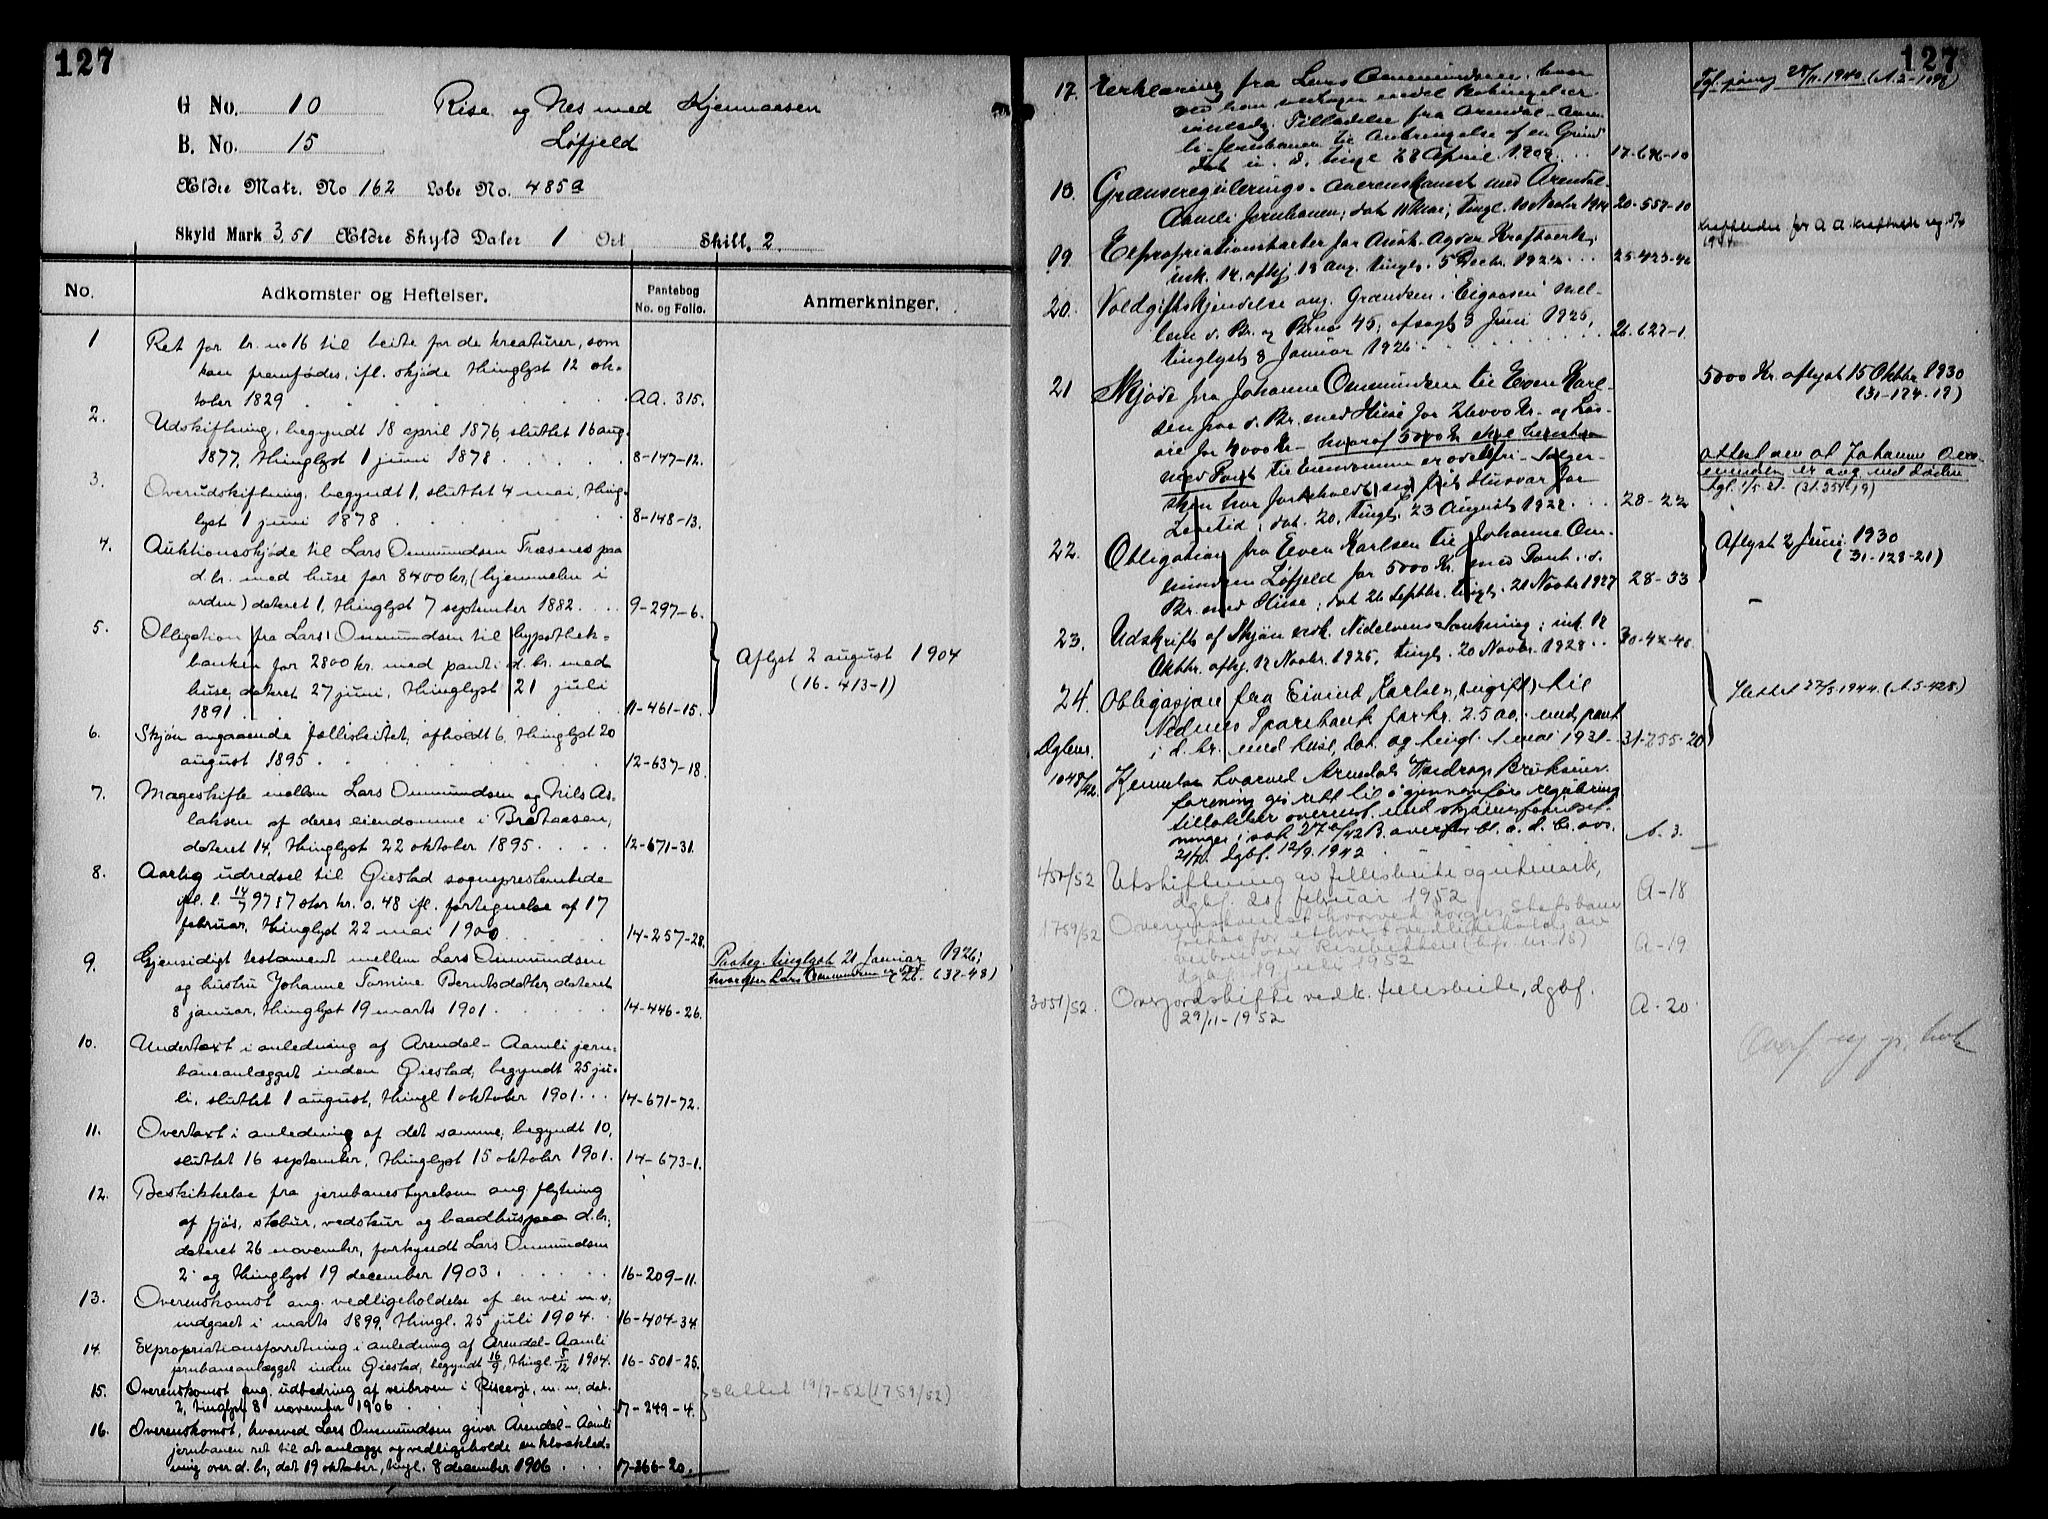 127
G No. 10 Rise og Nes med Kjennaasen
B. No. 15 Løfjeld
Ældre Matr. No 162 Løbe No. 485a
Skyld Mark 3,51 Ældre Skyld Daler 1 Ort Skill. 2
No. Adkomster og Heftelser. Pantebog No. og Folio. Anmerkninger.
1 Ret for br. no 16 til beite for de kreaturer, som
kan fremfødes, ifl. skjøde thinglyst 12 ok-
tober 1829 aa. 315.
2. Udskiftning, begyndt 18 april 1876, sluttet 16 aug.
1877, thinglyst 1 juni 1878 8-147-12.
3. Overudskiftning, begyndt 1, sluttet 4 mai, thing-
lyst 1 juni 1878 8-148-13.
4. Auktionsskjøde til Lars Ommundsen Træsnes paa
d. br. med huse for 8400 kr, (hjemmelen i
orden) dateret 1, thinglyst 7 september 1882. 9-297-6.
5. Obligation fra Lars Ommundsen til hypothek-
banken for 2800 kr. med pant i d. br. med
huse, dateret 27 juni, thinglyst 21 juli
1891. 11-461-15.
Aflyst 2 august 1904
(16-413-1)
6. Skjøn angaaende fællisbeitet, afholdt 6, thinglyst 20
august 1895 12-637-18.
7. Mageskifte mellem Lars Ommundsen og Nils As-
laksen af deres eiendomme i Bråtaasen,
dateret 14, thinglyst 22 oktober 1895. 12-671-31.
8. Aarlig udredsel til Øiestad sogneprestembede
februar, thinglyst 22 mai 1900 14-257-28.
9. Gjensidigt testament mellem Lars Ommundsen
og hustru Johanne Tomine Berntsdatter, dateret
8 januar, thinglyst 19 marts 1901. 14-446-26.
Paateg. tinglyst 21 Januar 1926,
10. Undertaxt i anledning af Arendal-Aamli jern-
baneanlægget inden Øiestad, begyndt 25 ju-
li, sluttet 1 august, thingl 1 oktober 1901. 14-671-72.
11. Overtaxt i anledning af det samme, begyndt 10,
sluttet 16 september, thinglyst 15 oktober 1901. 14-673-1.
12. Beskikkelse fra jernbanestyrelsen ang. flytning
af fjøs, stabur, vedskur og baadhus paa d. br.,
dateret 26 november, forkyndt Lars Ommundsen
2 og thinglyst 19 december 1903. 16-209-11.
13. Overenskomst ang. vedligeholdelse af en vei m. v.,
indgaaet i marts 1899, thingl. 25 juli 1904. 16-404-34.
14. Expropriationsforretning i anledning af Arendal-Aamli
jernbaneanlægget inden Øiestad, begyndt 16/9, thingl. 5/12 1904. 16-501-25.
15. Overenskomst ang. udbedring af veibroen i m. m, dat.
2, thinglyst 8 november 1906 17-249-4.
Slettet 19/7-52 (1759/52)
16. Overenskomst, hvorved Lars Ommundsen giver Arendal-Aamli
jernbanen ret til at anlægge og vedligeholde en kloakled-
ning over d. br, dat 19 oktober, tingl. 8 december 1906 17-266-20.
127
17. Erklæring fra Lars Ommundsen, hvor
ved han vedtager endel Betingelser
Tilladelse fra Arendal-Aam-
li-Jernbanen til Anbringelse af en Grind
28 April 1909 17-696-10
18 Grænseregulerings-overenskomst med Arendal-
Aamli Jernbanen, dat 11 Mai, Tingl. 10 Novbr 1914 20-557-10
19. Expropriationskarter for Aust-Agder Kraftverk,
ink. 12, afhj. 19 Aug. tingl. 5 Decbr. 1922 25-423-46
20. Voldgiftskjendelse ang. Grændsen i Eigaasen mel-
lem d. Br. og Brno 45, afsagt 3 Juni 1925,
tinglyst 8 Januar 1926. 26-627-1.
21 Skjøde fra Johanne Ommundsen til Even Karl-
sen paa d. Br. med Huse for 26000 Kr. og Løs-
øre for 4000 Kr - hvoraf 5000 Kr skal
med Pant til Eiendommen er odelsfri - Sælger-
sken har forbeholdt sig frit Husvær for
Levetid, dat. 20, tingl. 23 August 1927. 28-22
5000 Kr. aflyst 15 Oktbr. 1930
(31-174-17)
attest om at Johanne Om-
mundsen er avg. ved døden
22. Obligation fra Even Karlsen til Johanne Om-
mundsen Løfjeld for 5000 Kr. med Pant i d.
Br. med Huse, dat 26 Septbr. tingl. 21 Novbr 1927 28-33
Aflyst 2 Juni 1930
(31-128-21)
23. Udskrift af Skjøn vedk. Nidelvens Senkning, ink 12
Oktbr. afhj. 12 Novbr. 1925, tingl. 20 Novbr. 1928 30-42-48
24. Obligasjon fra Eivind Karlsen, (ugift) til
Nedenes Sparebank for kr. 2500, med pant
i d. br. med huse, dat. og tingl. 1 mai 1931 31-255-20
Slettet 27/3 1944. (A.5-428)
Dgbnr.
1048/42. Kjennelse hvorved Arendals Vasdrags Brukseier-
forening gis rett til å gjennemføre regulering
dgbf. 12/9. 1942. A. 3.
450/52 Utskiftning av fellesbeite og utmark,
dgbf. februar 1952 A-18
1759/52 Overenskomst hvorved Norges Statsbaner
dgbf. 19 juli 1952 A-19
3051/52. Overjordskifte vedk. fellesbeite, dgbf.
29/11-1952 A-20